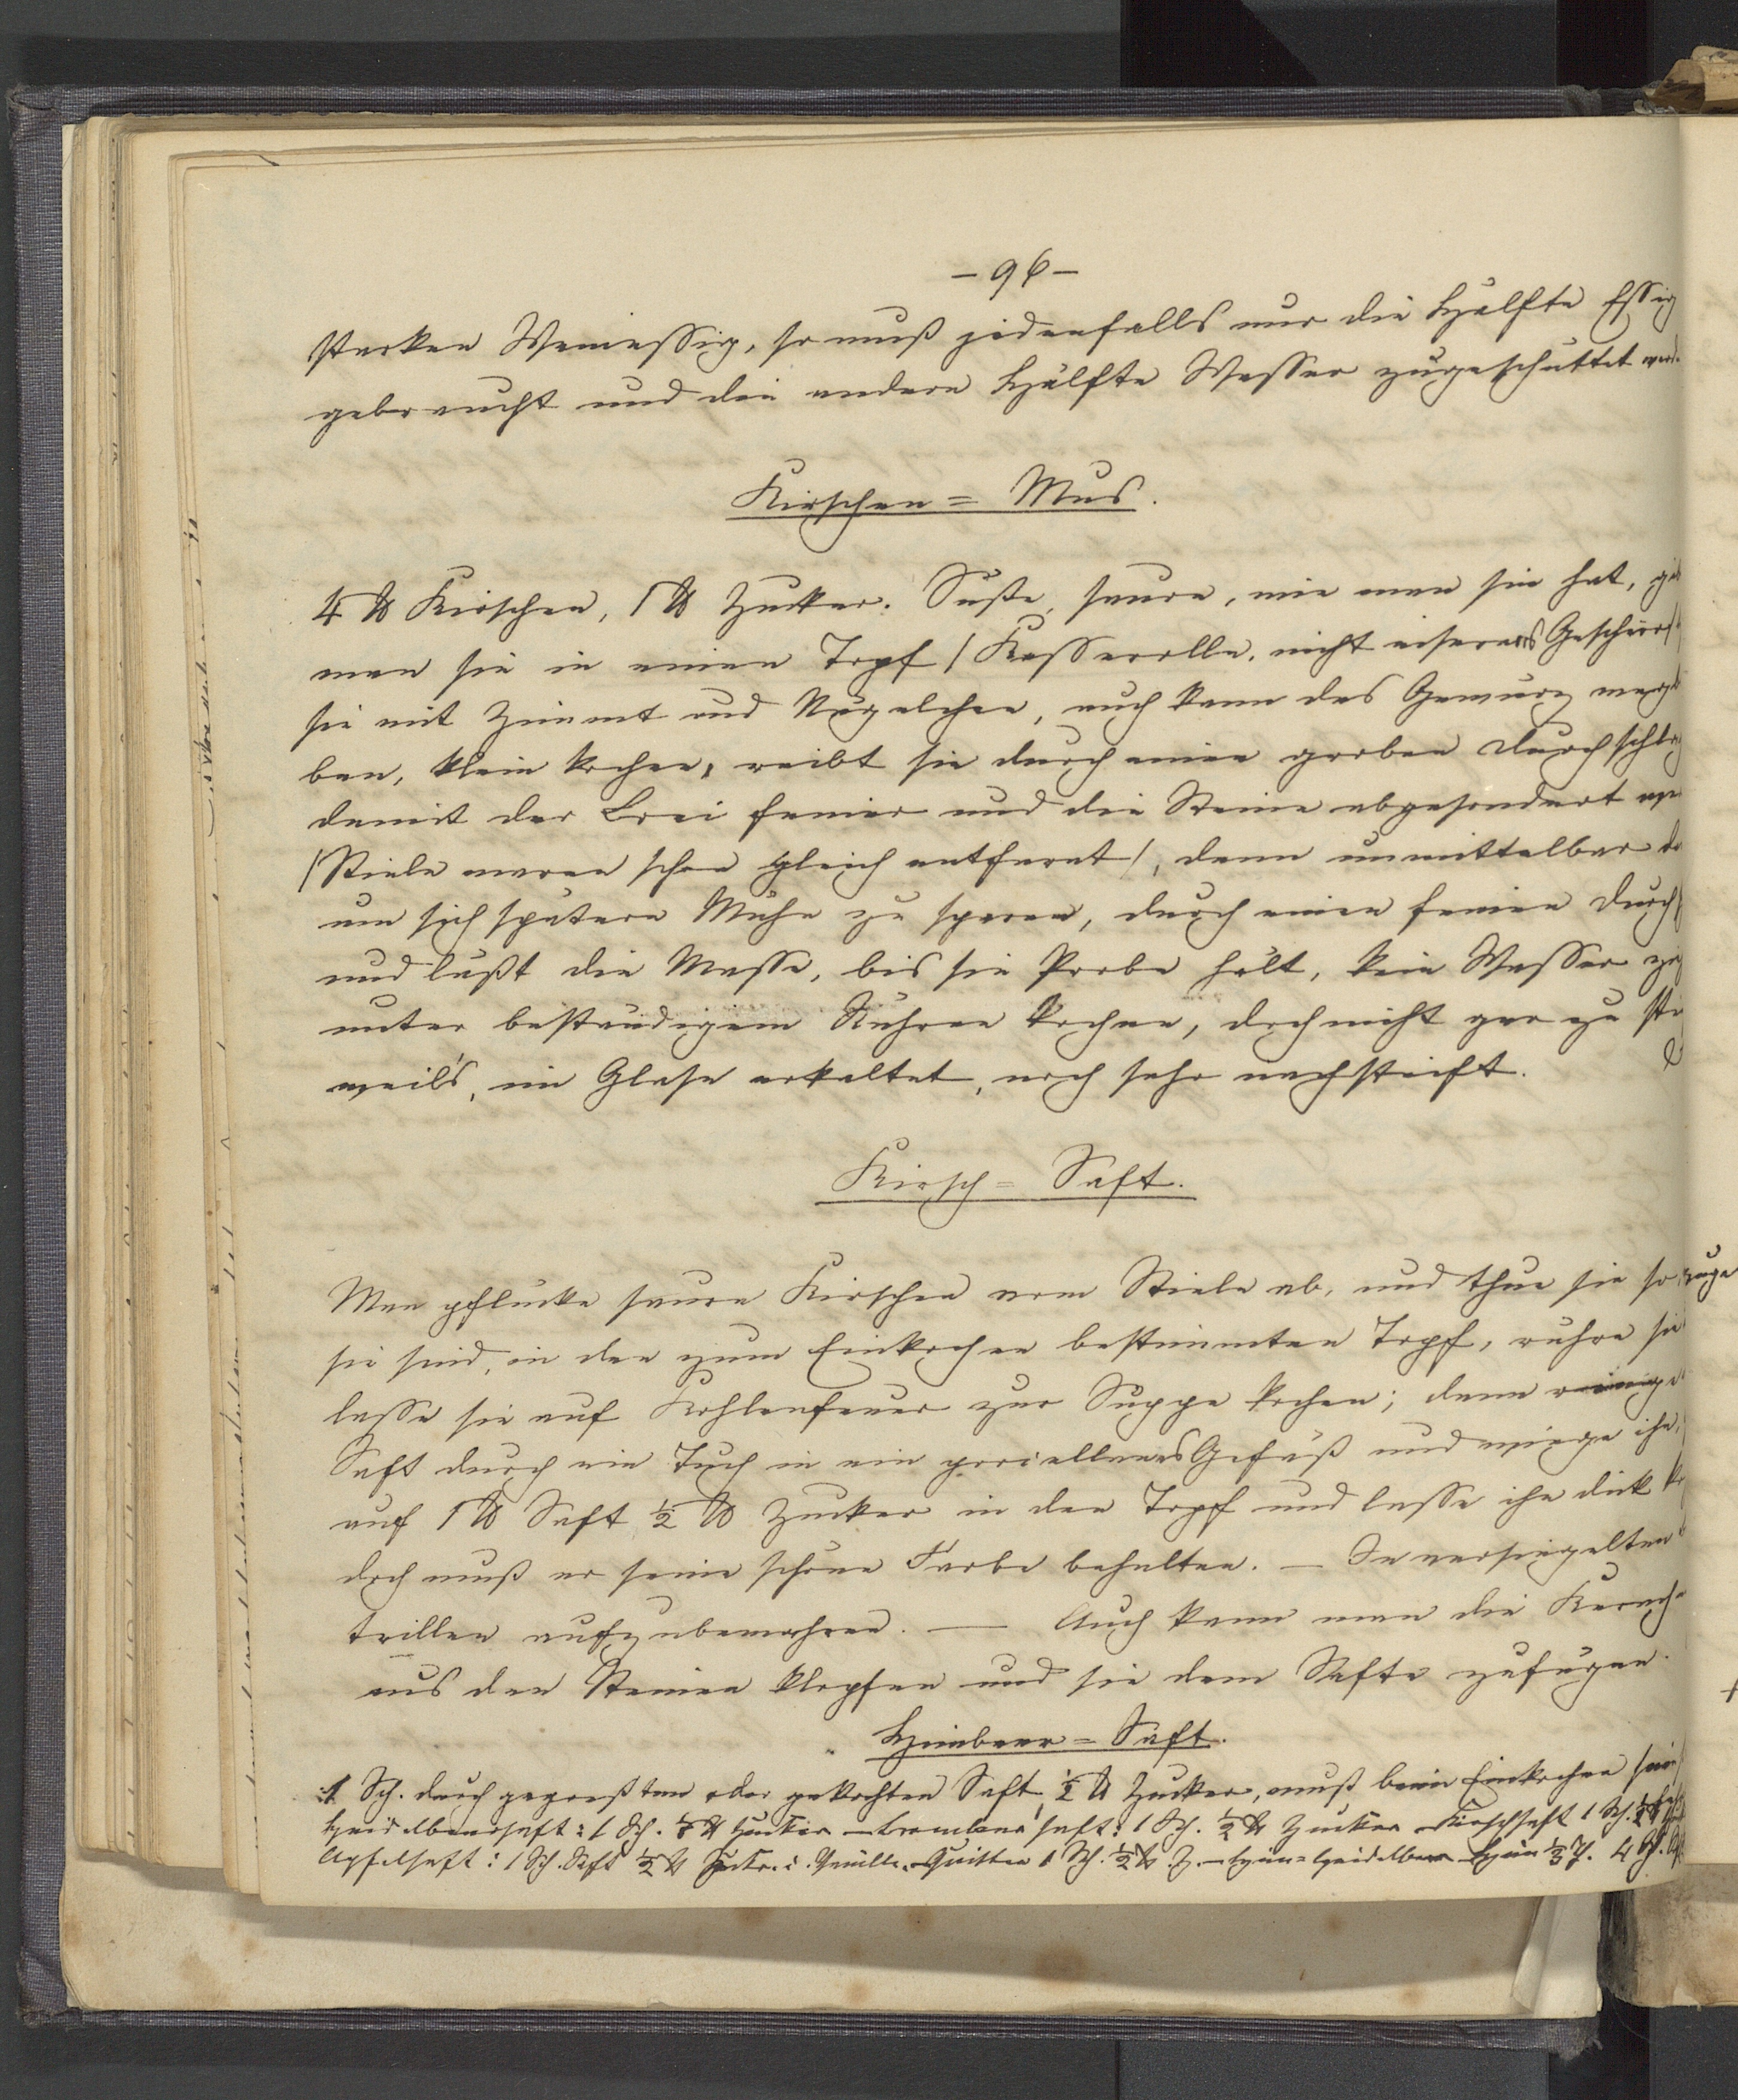 – 96 –
starken Weinessig, so muß jedenfalls nur die Hälfte Essig
gebraucht und die andere Hälfte Wasser zugeschüttet werd.
Kirschen = Mus.
4 ℔ Kirschen, 1 ℔ Zucker. Süße, saure, wie man sie hat,
man sie in einen Topf / Kasserolle, nicht eisernes Geschirr /
sie mit Zimmt und Nägelchen, auch kann das Gewürz
ben, klein kochen, reibt sie durch einen groben Durchschlag
damit der Brei feiner und die Steine abgesondert
/ Stiele waren schon gleich entfernt /, dann unmittelbar
um sich spätere Mühe zu sparen, durch einen feinen Durch
und läßt die Masse, bis sie Probe hält, kein Wasser
unter beständigem Rühren kochen, doch nicht gar zu
weil's, im Glase erkaltet, noch sehr nachsteift.
Kirsch = Saft.
Man pflücke saure Kirschen vom Stiele ab, und thue sie so
sie sind, in den zum Einkochen bestimmten Topf, rühre sie
lasse sie auf Kohlenfeuer zur Suppe kochen; dann
Saft durch ein Tuch in ein porcellanes Gefäß und wiege ihn,
auf 1 ℔ Saft ½ ℔ Zucker in den Topf und lasse ihn dick
doch muß er seine schöne Farbe behalten. – In versiegelten
trillen aufzubewahren. — Auch kann man die Kerne
aus den Steinen klopfen und sie dem Safte zufügen.
Himbeer = Saft.
1 Sch. durch gepreßten oder gekochten Saft, ½ ℔ Zucker, muß beim Einkochen
Heidelbeersaft: 1 Sch. ½ ℔ Zucker – Brombeersaft: 1 Sch. ½ ℔ Zucker – Kirschsaft 1 Sch. ½ ℔
Apfelsaft: 1 Sch. Saft ½ ℔ Zuck. i. Vanille. – Quitten 1 Sch. ½ ℔ Z. –